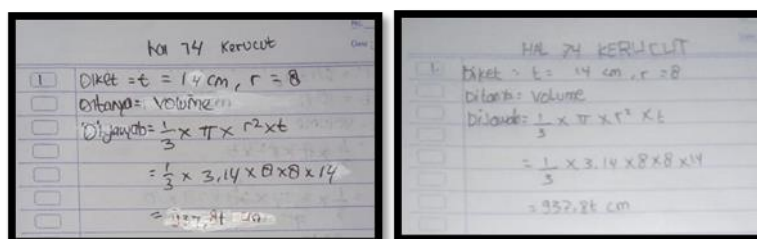 hal 74 Kerucut
1 Diket = t = 14 cm, r = 8
Ditanya = Volume
Dijawab = 1/3 × π × r² × t
= 1/3 × 3,14 × 8 × 8 × 14
= 937,8t
HAL 74 KERUCUT
1. Diket = t = 14 cm, r = 8
Ditanya = Volume
Dijawab = 1/3 × π × r² × t
= 1/3 × 3.14 × 8 × 8 × 14
= 937.8t cm